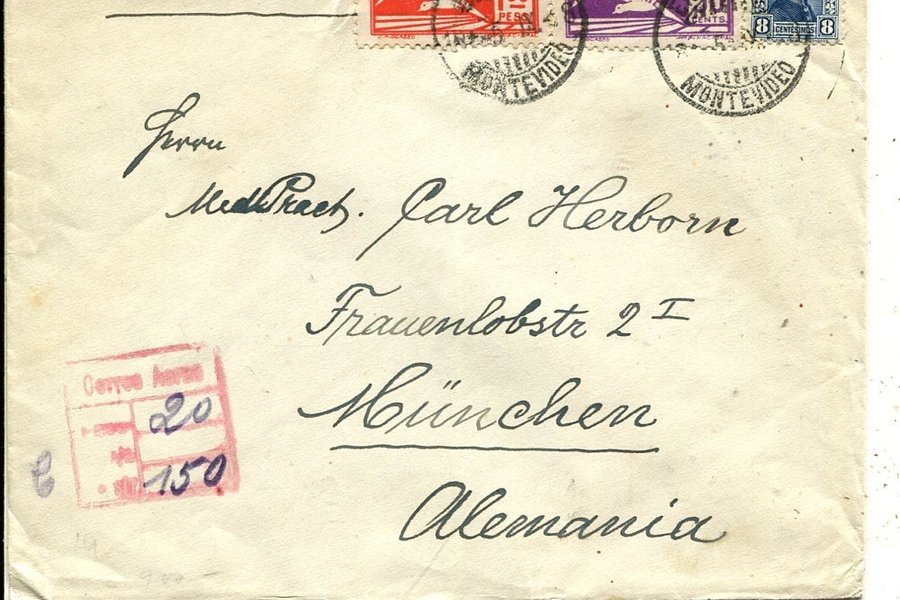 PESO
CENTS.
8 CENTÉSIMOS 8
MONTEVIDEO
MONTEVIDEO
Herrn
Med. Pract. Carl Herborn
Frauenlobstr 2 I
München
Alemania
Correo Aereo
20
150